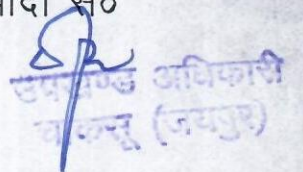 सं०
उपखण्ड अधिकारी
चाकसू (जयपुर)